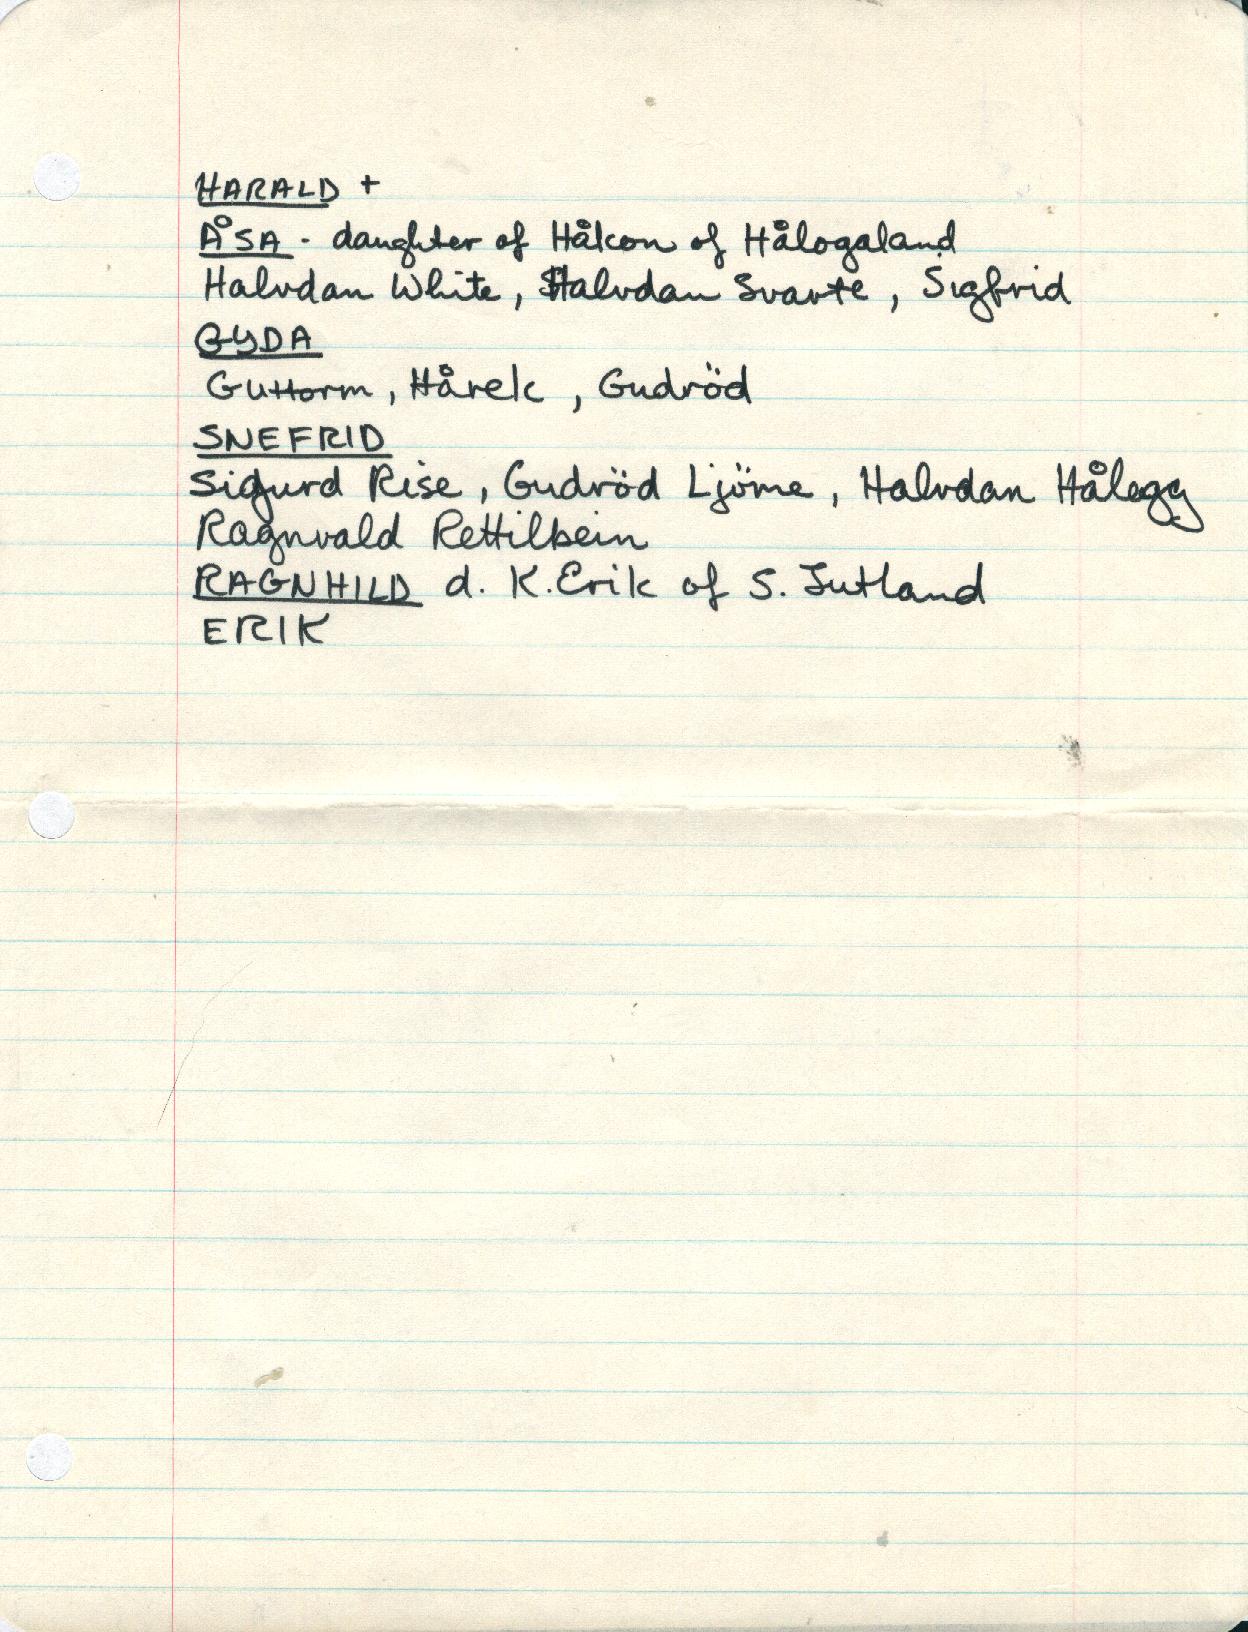 HARALD +
ÅSA - daughter of Håkon of Hålogaland
Halvdan White, Halvdan Svarte, Sigfrid
GYDA
Guttorm, Hårek, Gudröd
SNEFRID
Sigurd Rise, Gudröd Ljöme, Halvdan Hålegg
Ragnvald Rettilbein
RAGNHILD d. K. Erik of S. Jutland
ERIK